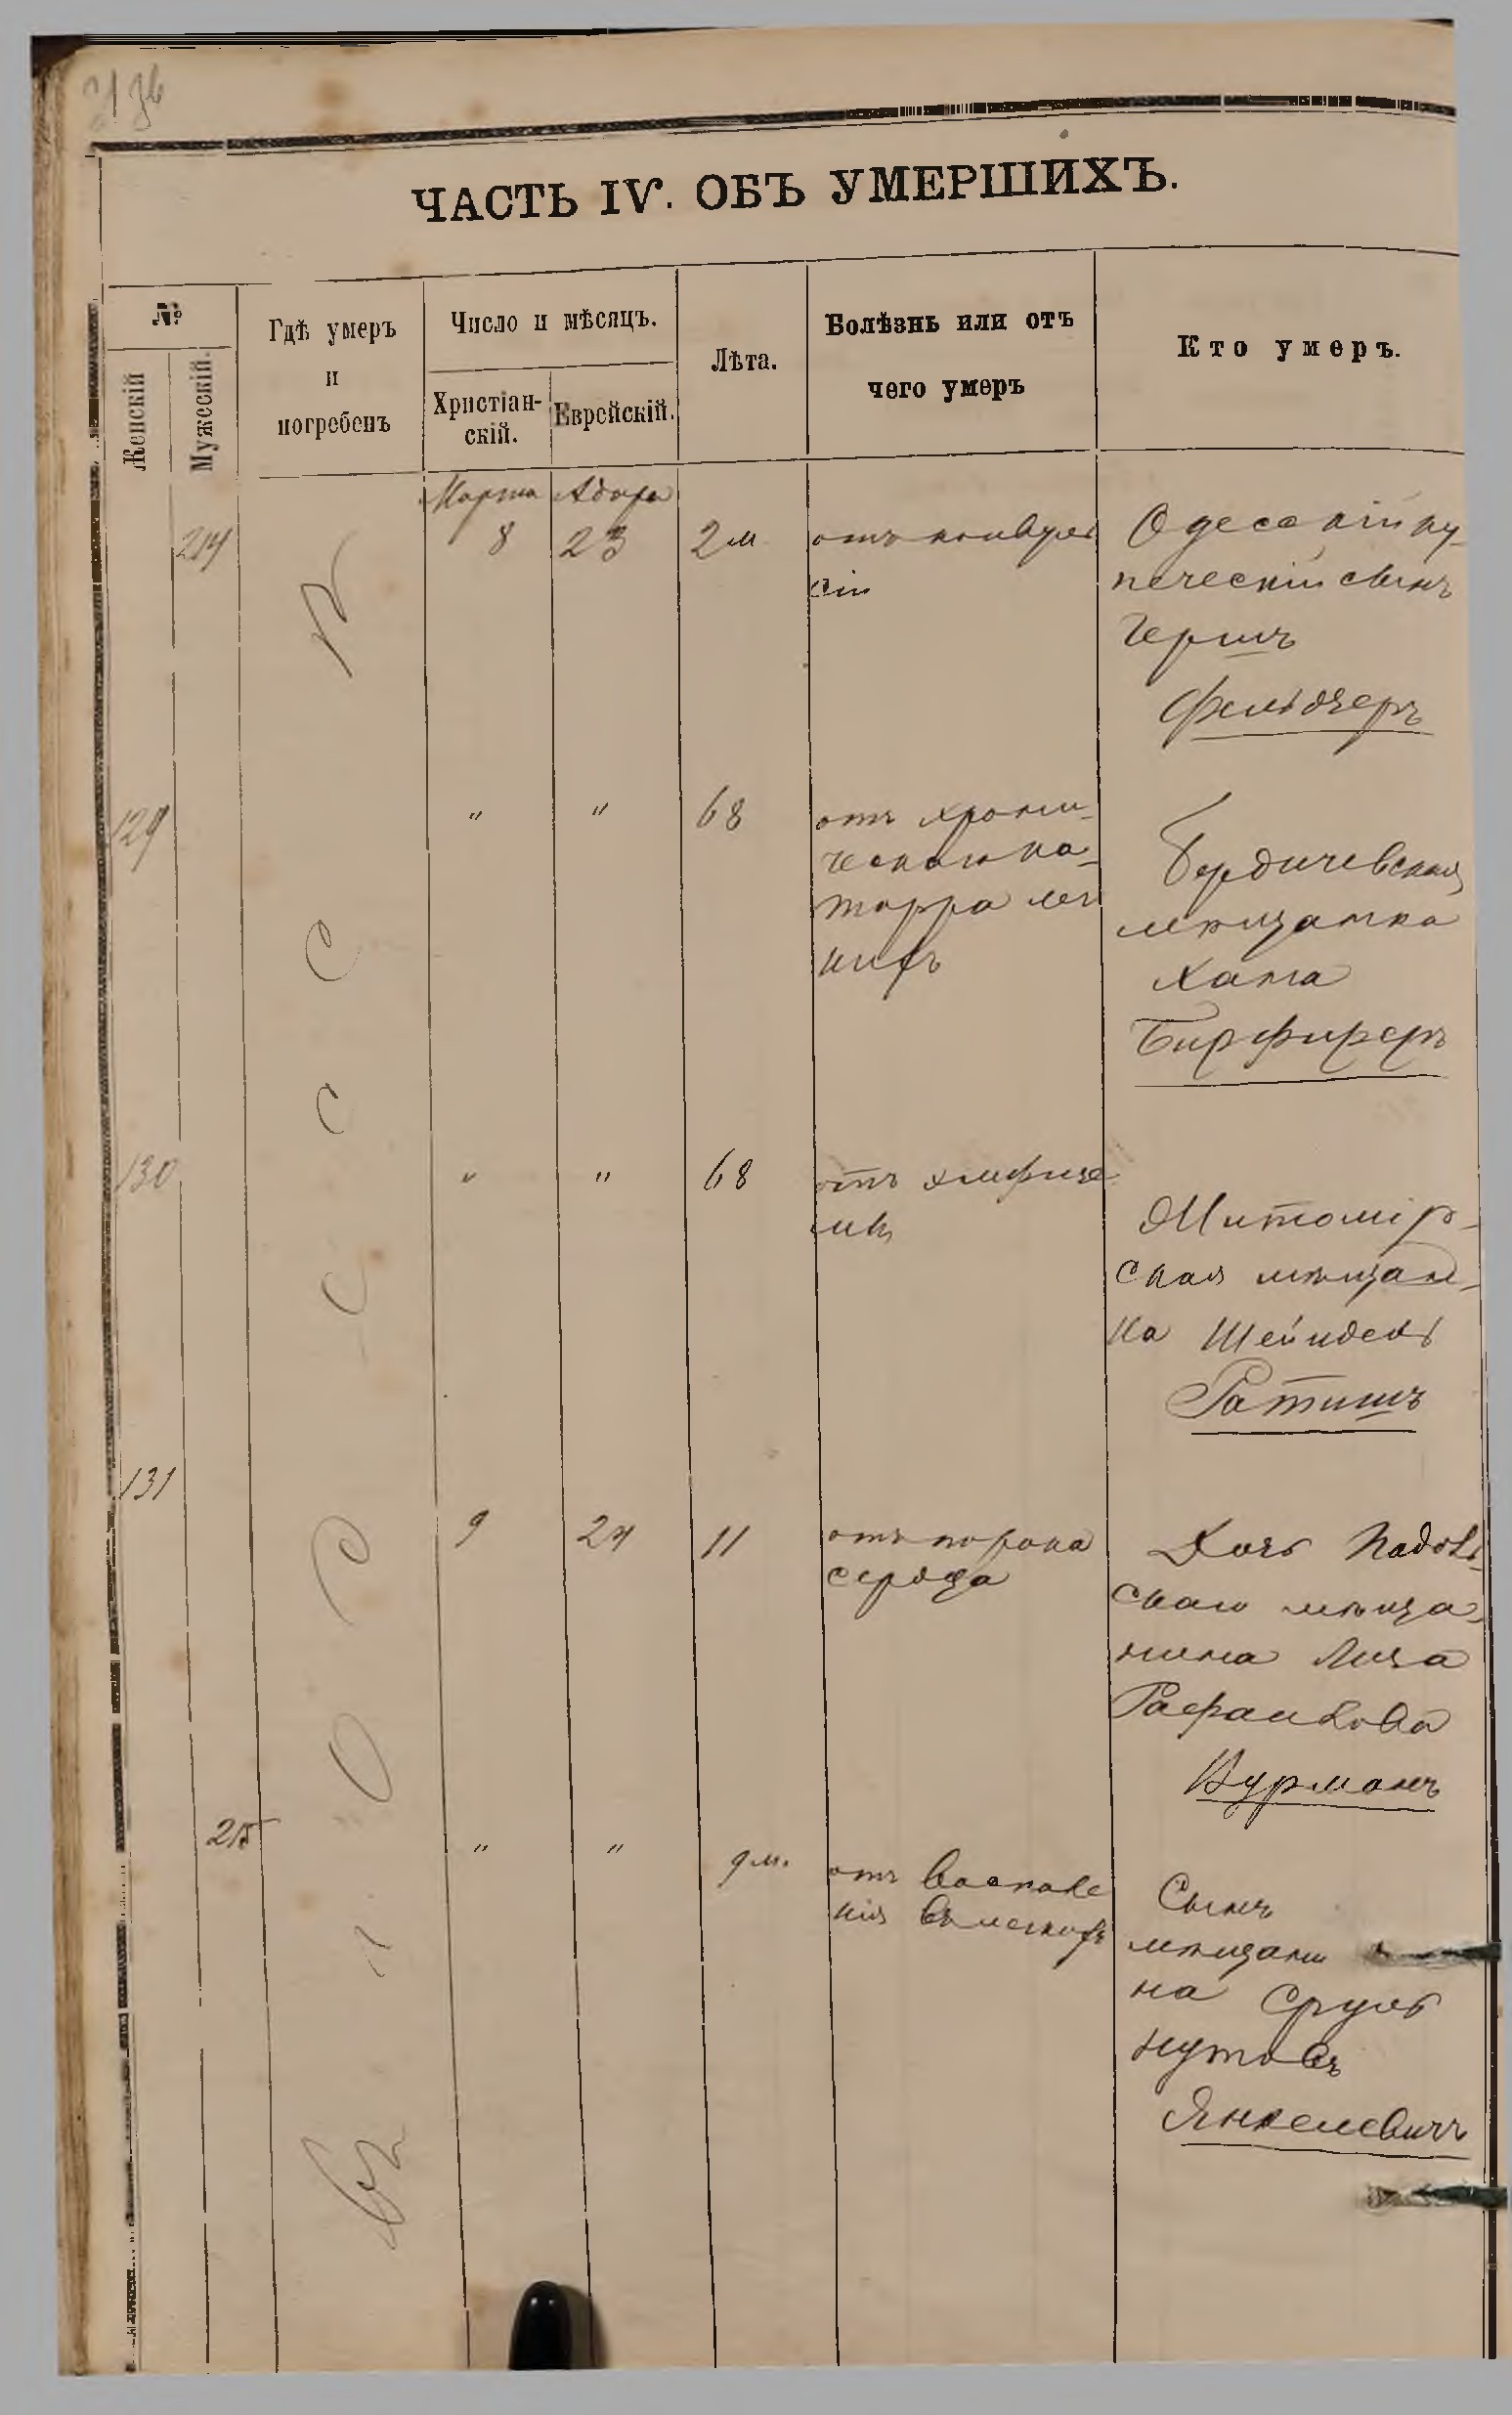 ЧАСТЬ IV. ОБЪ УМЕРШИХЪ.
№
Женскій
Мужескій.
Гдѣ умеръ
и
погребенъ
Число и мѣсяцъ.
Христіан-
скій.
Еврейскій.
Лѣта.
Болѣзнь или отъ
чего умеръ
Кто умеръ.
Въ Одессѣ
Марта Адара
214 8 23 2 м отъ конвуль
сіи
Одесскій ку-
печескій сынъ
Гершъ
Фельдзеръ
129 " " 68 отъ хрони-
ческаго ка-
тарра лег
кихъ
Бердичевская
мѣщанка
Хана
Бирфиреръ
130 " " 68 отъ эмфизе
мы
Житомір-
ская мѣщан-
ка Шейндель
Ратишъ
131 9 24 11 отъ порока
сердца
Дочь Подоль-
скаго мѣща-
нина Лиза
Рафаилова
Курманъ
215 " " 9 м. отъ воспале
нія въ легкихъ
Сынъ
мѣщани
на Сруль
Нутовъ
Янкелевичъ